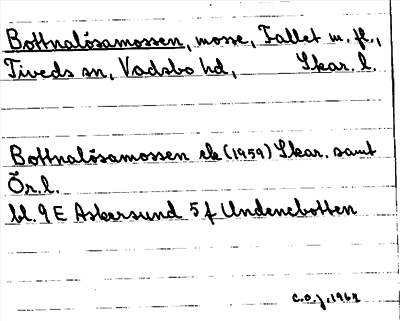 Bottnalösamossen, mosse, Fallet m. fl.,
Tiveds sn, Vadsbo hd, Skar. l.
Bottnalösamossen ek (1959) Skar. samt
Ör. l.
bl. 9 E Askersund 5 f Undenebotten
C.O.J. 1962